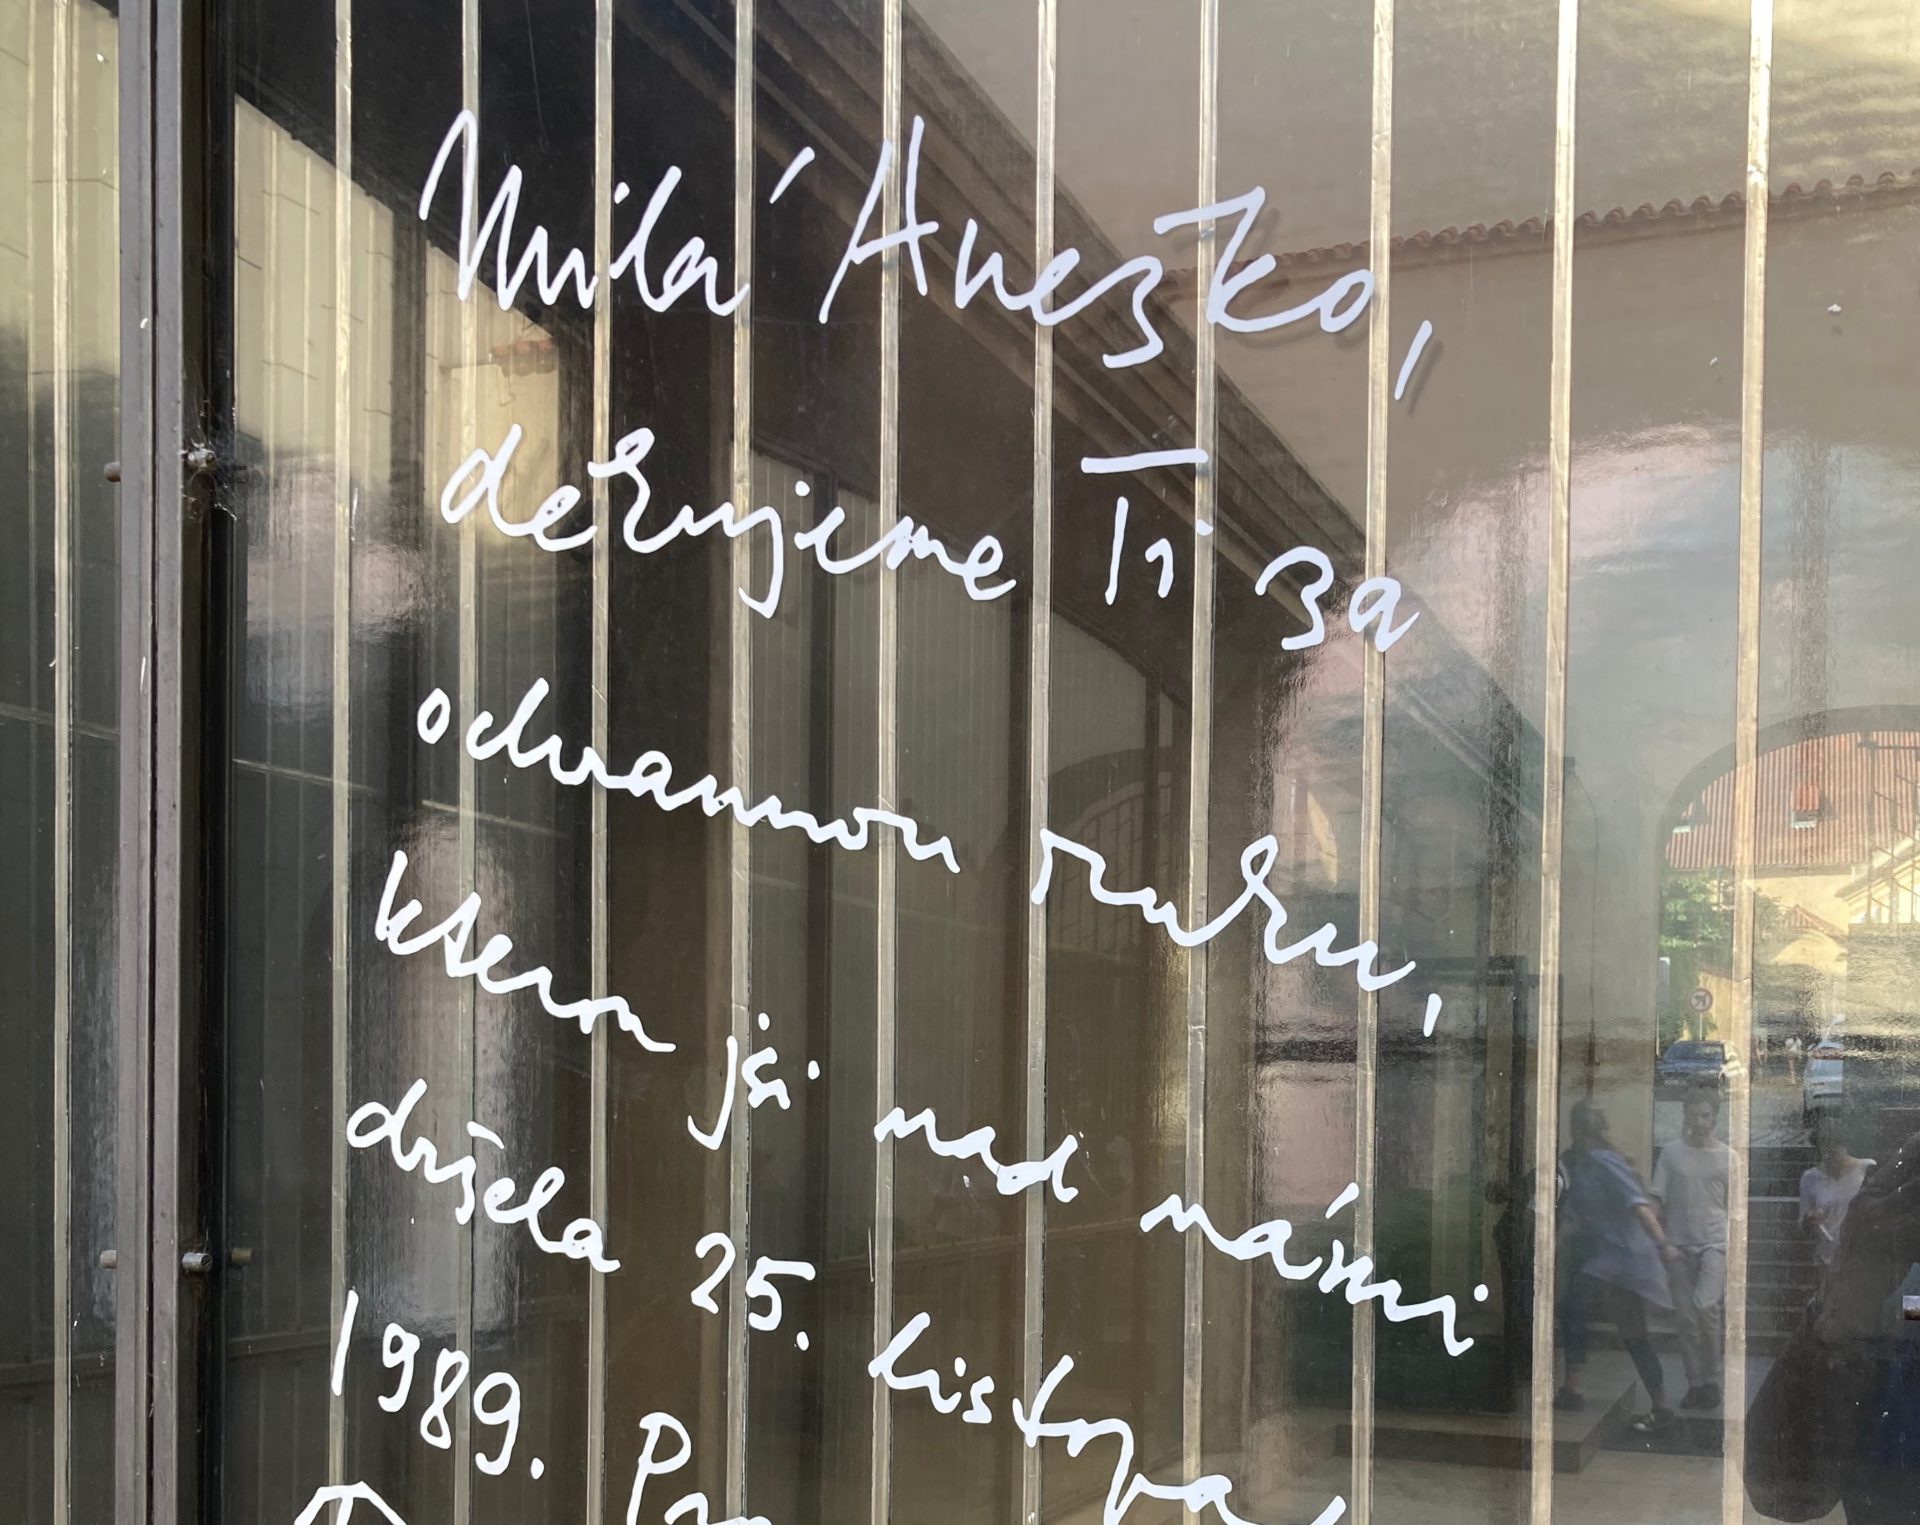 Milá Anežko,
děkujeme Ti za
ochrannou ruku,
kterou jsi nad námi
držela 25. listopadu
1989.